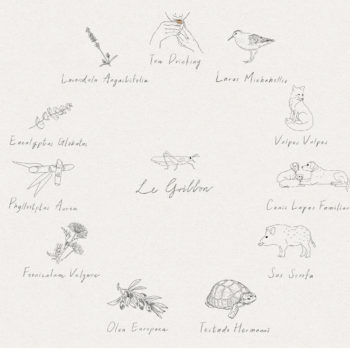 Tea Drinking
Lavandula Angustifolia
Larus Michahellis
Eucalyptus Globulus
Vulpes Vulpes
Le Grillon
Phyllostachys Aurea
Canis Lupus Familiar
Foeniculum Vulgare
Sus Scrofa
Olea Europaea
Testudo Hermanni